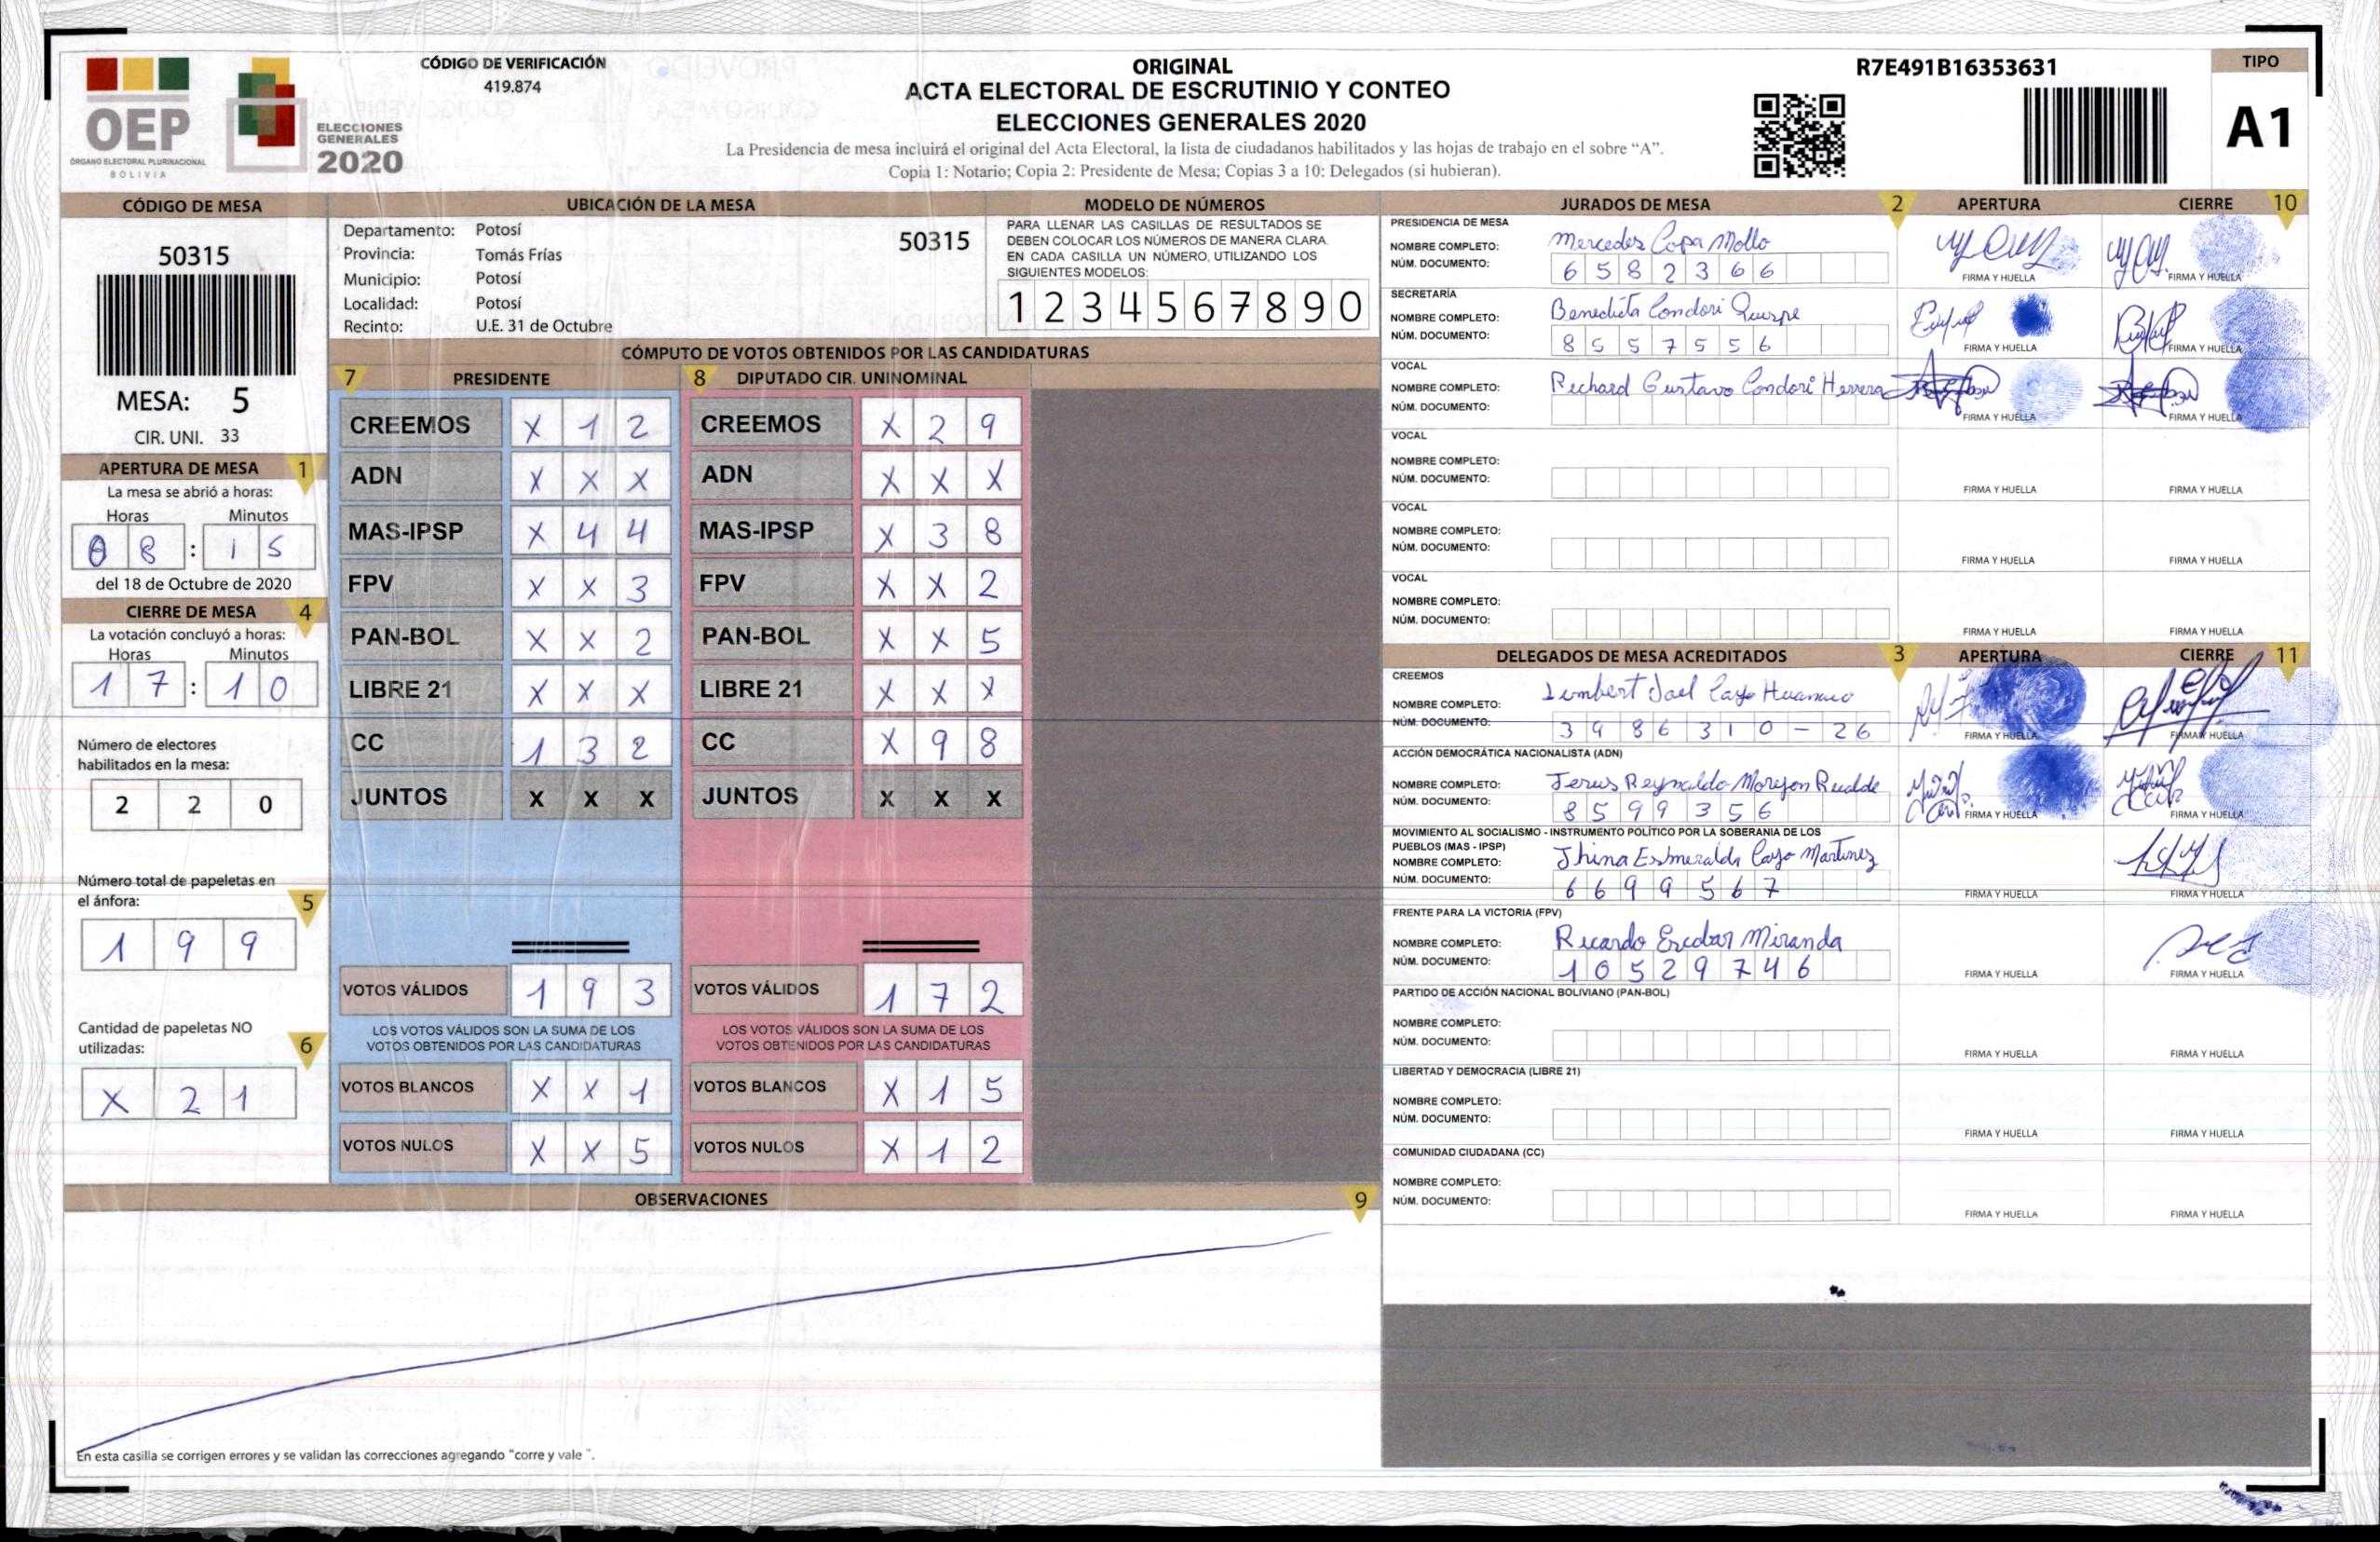 CÓDIGO DE VERIFICACIÓN
419.874
OEP
ÓRGANO ELECTORAL PLURINACIONAL
BOLIVIA
ELECCIONES
GENERALES
2020
ORIGINAL
ACTA ELECTORAL DE ESCRUTINIO Y CONTEO
ELECCIONES GENERALES 2020
La Presidencia de mesa incluirá el original del Acta Electoral, la lista de ciudadanos habilitados y las hojas de trabajo en el sobre “A”.
Copia 1: Notario; Copia 2: Presidente de Mesa; Copias 3 a 10: Delegados (si hubieran).
R7E491B16353631
TIPO
A1
CÓDIGO DE MESA
50315
MESA: 5
CIR. UNI. 33
APERTURA DE MESA 1
La mesa se abrió a horas:
Horas Minutos
0 8 : 1 5
del 18 de Octubre de 2020
CIERRE DE MESA 4
La votación concluyó a horas:
Horas Minutos
1 7 : 1 0
Número de electores
habilitados en la mesa:
2 2 0
Número total de papeletas en
el ánfora: 5
1 9 9
Cantidad de papeletas NO
utilizadas: 6
X 2 1
UBICACIÓN DE LA MESA
Departamento: Potosí 50315
Provincia: Tomás Frías
Municipio: Potosí
Localidad: Potosí
Recinto: U.E. 31 de Octubre
MODELO DE NÚMEROS
PARA LLENAR LAS CASILLAS DE RESULTADOS SE
DEBEN COLOCAR LOS NÚMEROS DE MANERA CLARA.
EN CADA CASILLA UN NÚMERO, UTILIZANDO LOS
SIGUIENTES MODELOS:
1 2 3 4 5 6 7 8 9 0
CÓMPUTO DE VOTOS OBTENIDOS POR LAS CANDIDATURAS
7 PRESIDENTE 8 DIPUTADO CIR. UNINOMINAL
CREEMOS X 1 2 CREEMOS X 2 9
ADN X X X ADN X X X
MAS-IPSP X 4 4 MAS-IPSP X 3 8
FPV X X 3 FPV X X 2
PAN-BOL X X 2 PAN-BOL X X 5
LIBRE 21 X X X LIBRE 21 X X X
CC 1 3 2 CC X 9 8
JUNTOS X X X JUNTOS X X X
VOTOS VÁLIDOS 1 9 3 VOTOS VÁLIDOS 1 7 2
LOS VOTOS VÁLIDOS SON LA SUMA DE LOS LOS VOTOS VÁLIDOS SON LA SUMA DE LOS
VOTOS OBTENIDOS POR LAS CANDIDATURAS VOTOS OBTENIDOS POR LAS CANDIDATURAS
VOTOS BLANCOS X X 1 VOTOS BLANCOS X 1 5
VOTOS NULOS X X 5 VOTOS NULOS X 1 2
OBSERVACIONES 9
En esta casilla se corrigen errores y se validan las correcciones agregando "corre y vale ".
JURADOS DE MESA 2 APERTURA CIERRE 10
PRESIDENCIA DE MESA
NOMBRE COMPLETO: Mercedes Copa Mollo
NÚM. DOCUMENTO: 6 5 8 2 3 6 6 FIRMA Y HUELLA FIRMA Y HUELLA
SECRETARÍA
NOMBRE COMPLETO: Benedicta Condori Quispe
NÚM. DOCUMENTO: 8 5 5 7 5 5 6 FIRMA Y HUELLA FIRMA Y HUELLA
VOCAL
NOMBRE COMPLETO: Richard Gustavo Condori Herrera
NÚM. DOCUMENTO: FIRMA Y HUELLA FIRMA Y HUELLA
VOCAL
NOMBRE COMPLETO:
NÚM. DOCUMENTO: FIRMA Y HUELLA FIRMA Y HUELLA
VOCAL
NOMBRE COMPLETO:
NÚM. DOCUMENTO: FIRMA Y HUELLA FIRMA Y HUELLA
VOCAL
NOMBRE COMPLETO:
NÚM. DOCUMENTO: FIRMA Y HUELLA FIRMA Y HUELLA
DELEGADOS DE MESA ACREDITADOS 3 APERTURA CIERRE 11
CREEMOS
NOMBRE COMPLETO: Jael Cayo
NÚM. DOCUMENTO: 3 9 8 6 3 1 0 - 2 6 FIRMA Y HUELLA FIRMA Y HUELLA
ACCIÓN DEMOCRÁTICA NACIONALISTA (ADN)
NOMBRE COMPLETO: Jesus Reynaldo Morejon
NÚM. DOCUMENTO: 8 5 9 9 3 5 6 FIRMA Y HUELLA FIRMA Y HUELLA
MOVIMIENTO AL SOCIALISMO - INSTRUMENTO POLÍTICO POR LA SOBERANIA DE LOS
PUEBLOS (MAS - IPSP)
NOMBRE COMPLETO: Jhina Esmeralda Cayo Martinez
NÚM. DOCUMENTO: 6 6 9 9 5 6 7 FIRMA Y HUELLA FIRMA Y HUELLA
FRENTE PARA LA VICTORIA (FPV)
NOMBRE COMPLETO: Ricardo Escobar Miranda
NÚM. DOCUMENTO: 1 0 5 2 9 7 4 6 FIRMA Y HUELLA FIRMA Y HUELLA
PARTIDO DE ACCIÓN NACIONAL BOLIVIANO (PAN-BOL)
NOMBRE COMPLETO:
NÚM. DOCUMENTO: FIRMA Y HUELLA FIRMA Y HUELLA
LIBERTAD Y DEMOCRACIA (LIBRE 21)
NOMBRE COMPLETO:
NÚM. DOCUMENTO: FIRMA Y HUELLA FIRMA Y HUELLA
COMUNIDAD CIUDADANA (CC)
NOMBRE COMPLETO:
NÚM. DOCUMENTO: FIRMA Y HUELLA FIRMA Y HUELLA